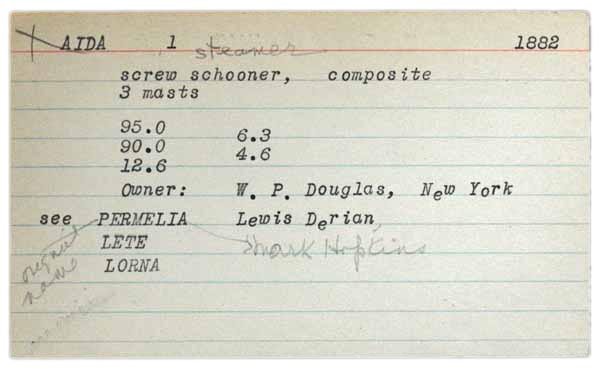 X AIDA 1 steamer 1882
screw schooner, composite
3 masts
95.0 6.3
90.0 4.6
12.6
Owner: W. P. Douglas, New York
see PERMELIA Lewis Derian,
LETE Mark Hopkins
LORNA
original
name